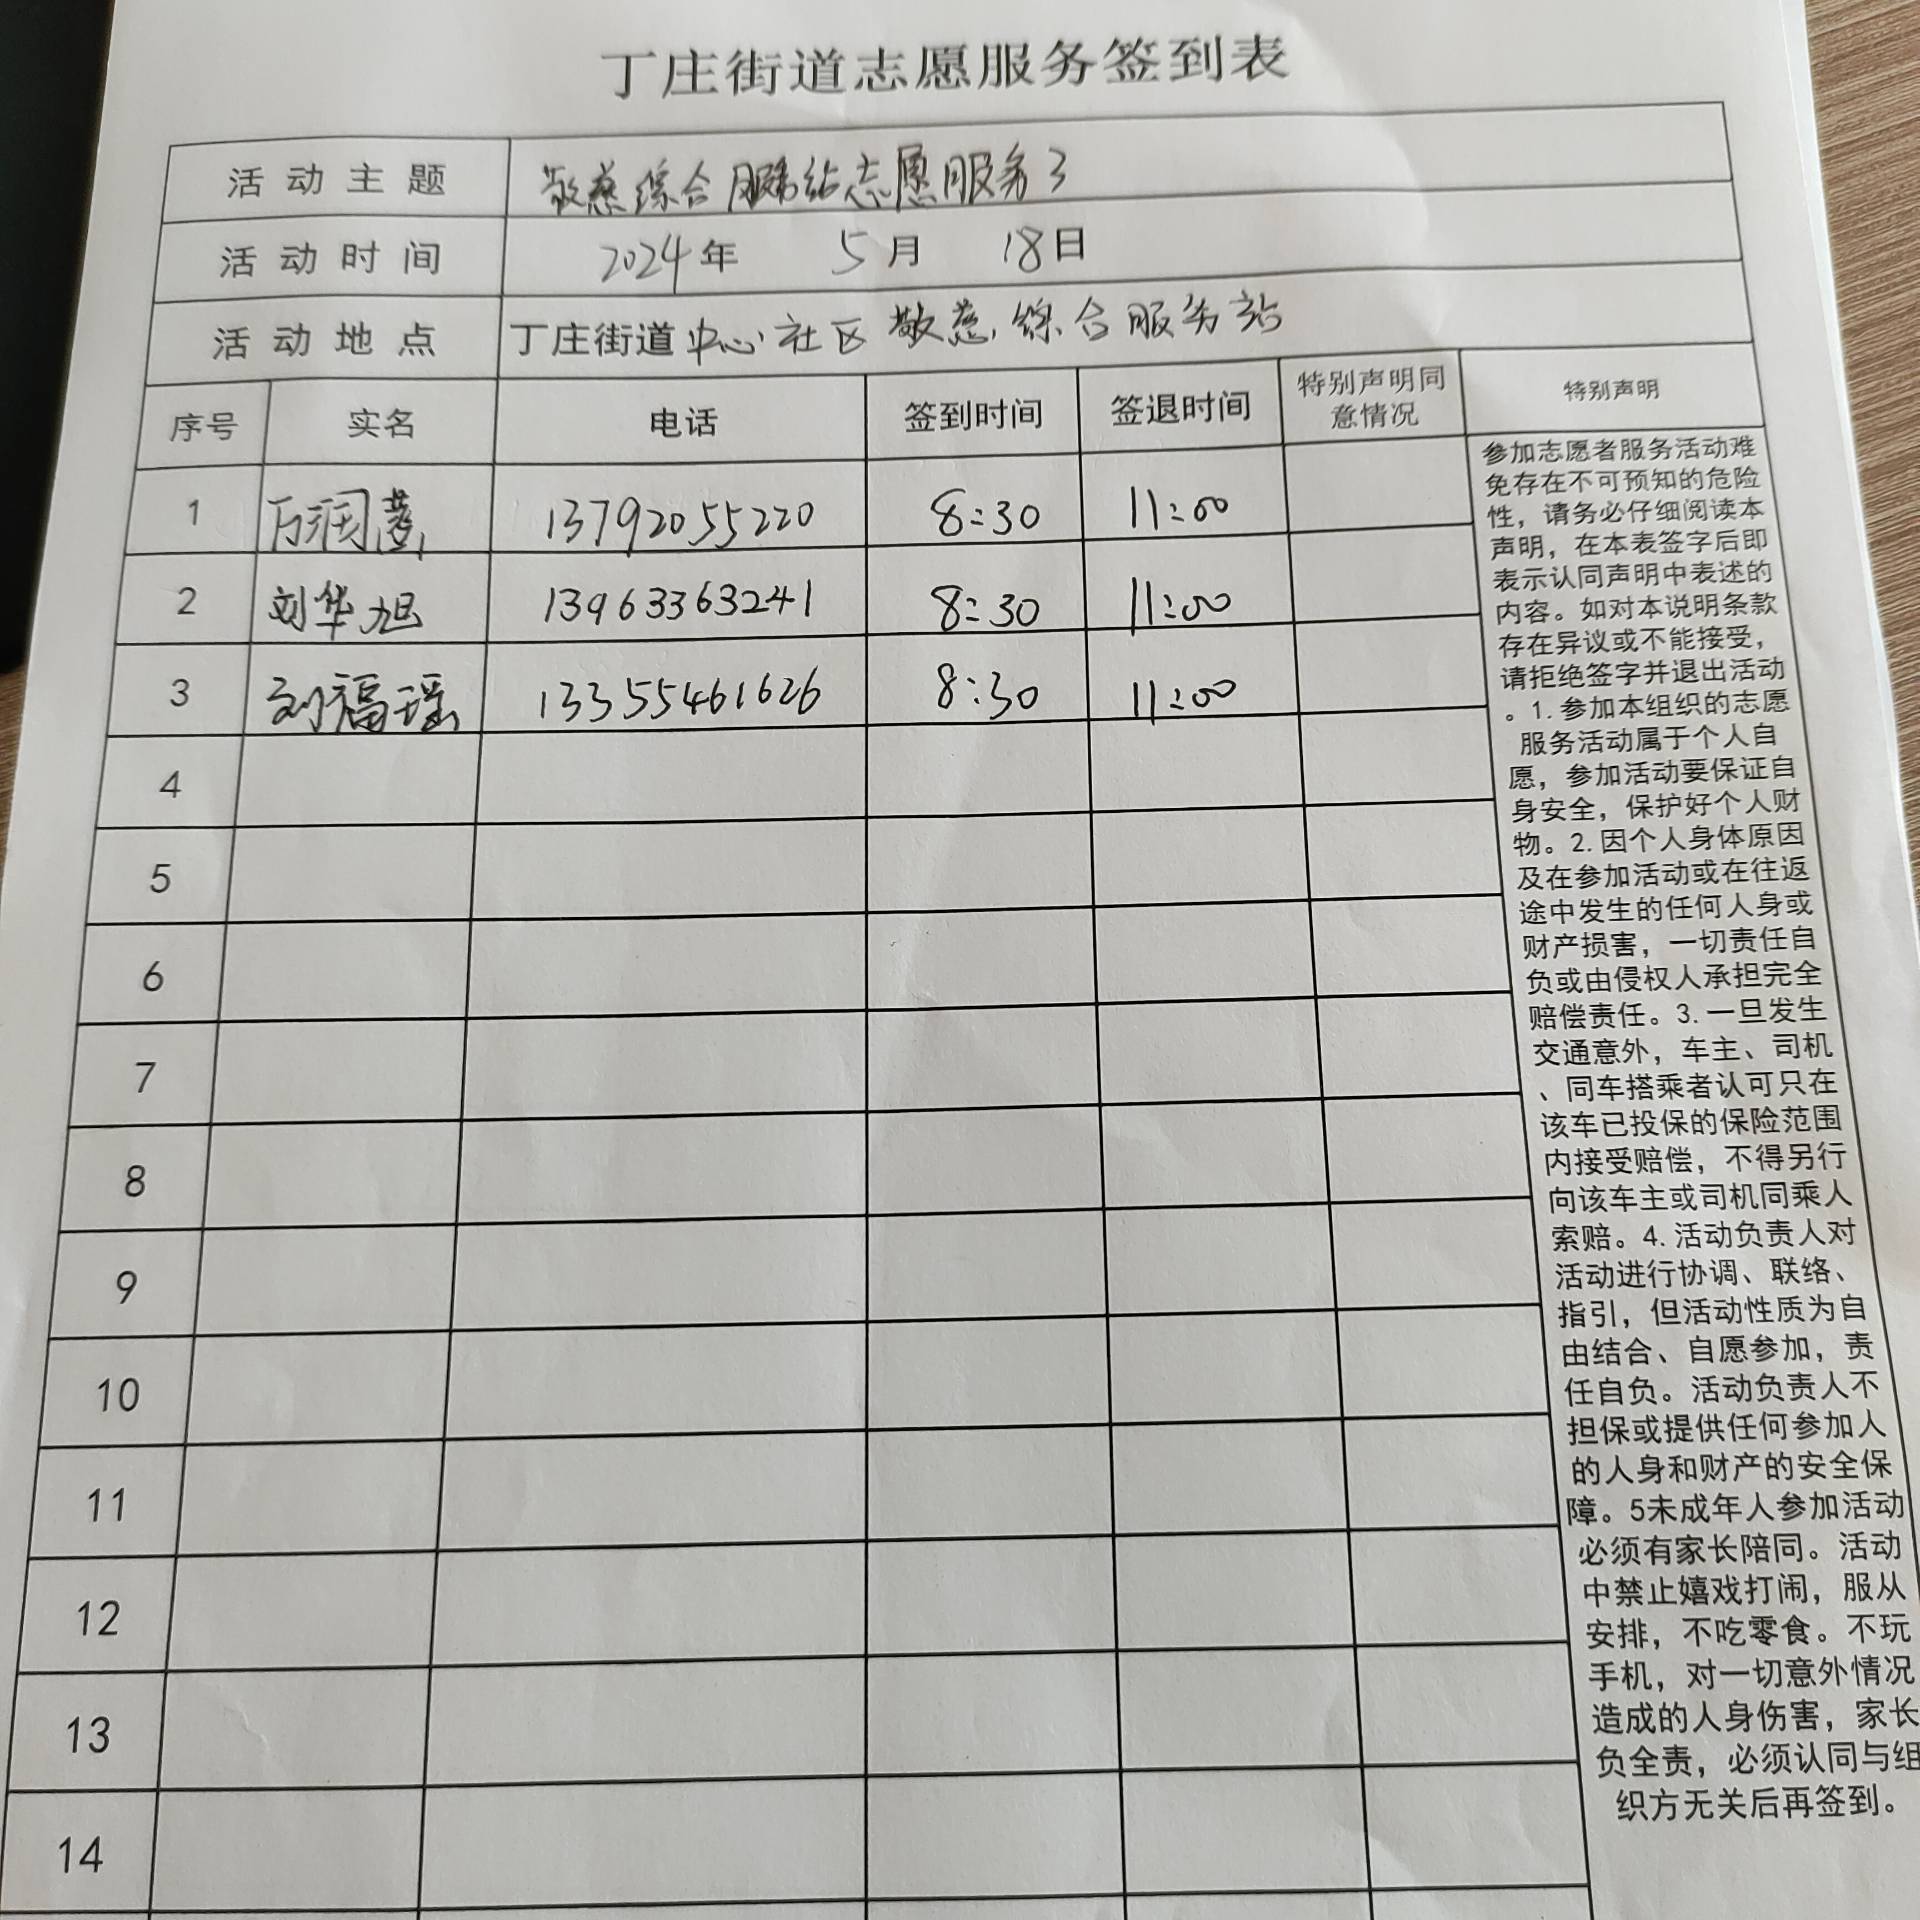 丁庄街道志愿服务签到表
活动主题 敬慈综合服务站志愿服务3
活动时间 2024年 5月 18日
活动地点 丁庄街道中心社区敬慈综合服务站
序号 实名 电话 签到时间 签退时间 特别声明同意情况 特别声明
1 13792055220 8:30 11:00
2 刘华旭 13963363241 8:30 11:00
3 刘福瑶 13355461626 8:30 11:00
4
5
6
7
8
9
10
11
12
13
14
参加志愿者服务活动难
免存在不可预知的危险
性，请务必仔细阅读本
声明，在本表签字后即
表示认同声明中表述的
内容。如对本说明条款
存在异议或不能接受，
请拒绝签字并退出活动
。1.参加本组织的志愿
服务活动属于个人自
愿，参加活动要保证自
身安全，保护好个人财
物。2.因个人身体原因
及在参加活动或在往返
途中发生的任何人身或
财产损害，一切责任自
负或由侵权人承担完全
赔偿责任。3.一旦发生
交通意外，车主、司机
、同车搭乘者认可只在
该车已投保的保险范围
内接受赔偿，不得另行
向该车主或司机同乘人
索赔。4.活动负责人对
活动进行协调、联络、
指引，但活动性质为自
由结合、自愿参加，责
任自负。活动负责人不
担保或提供任何参加人
的人身和财产的安全保
障。5未成年人参加活动
必须有家长陪同。活动
中禁止嬉戏打闹，服从
安排，不吃零食。不玩
手机，对一切意外情况
造成的人身伤害，家长
负全责，必须认同与组
织方无关后再签到。